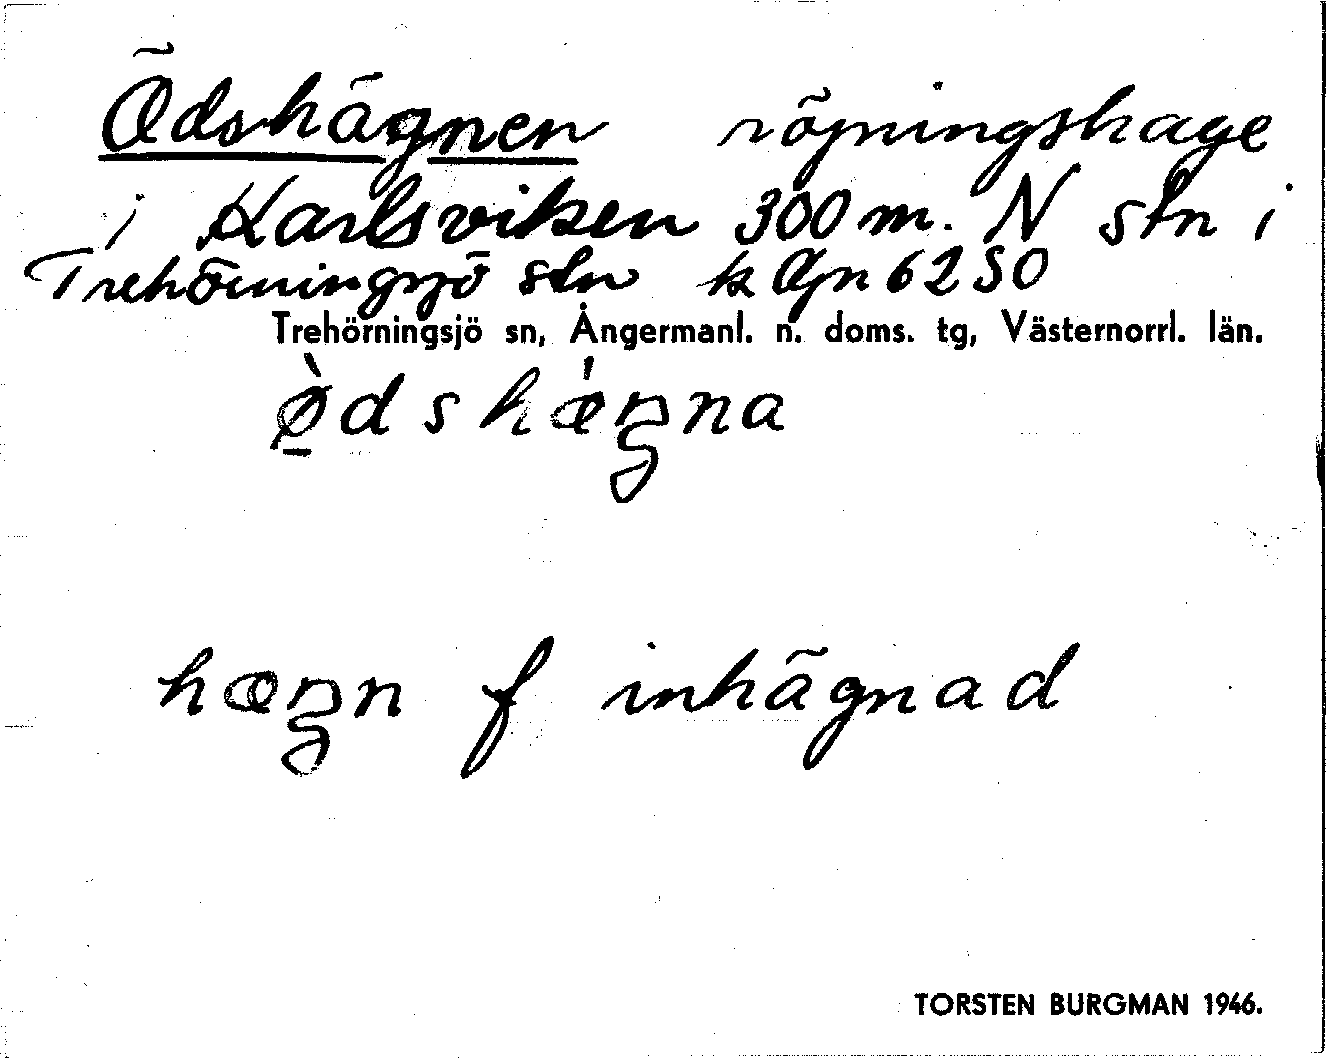 Ödshägnen röjningshage
i Karlsviken 300 m. N stn i
Trehörningsjö stn k Ögn 6250
Trehörningsjö sn, Ångermanl. n. doms. tg, Västernorrl. län.
ø̱̀dshǽŋna
hæŋn f inhägnad
TORSTEN BURGMAN 1946.